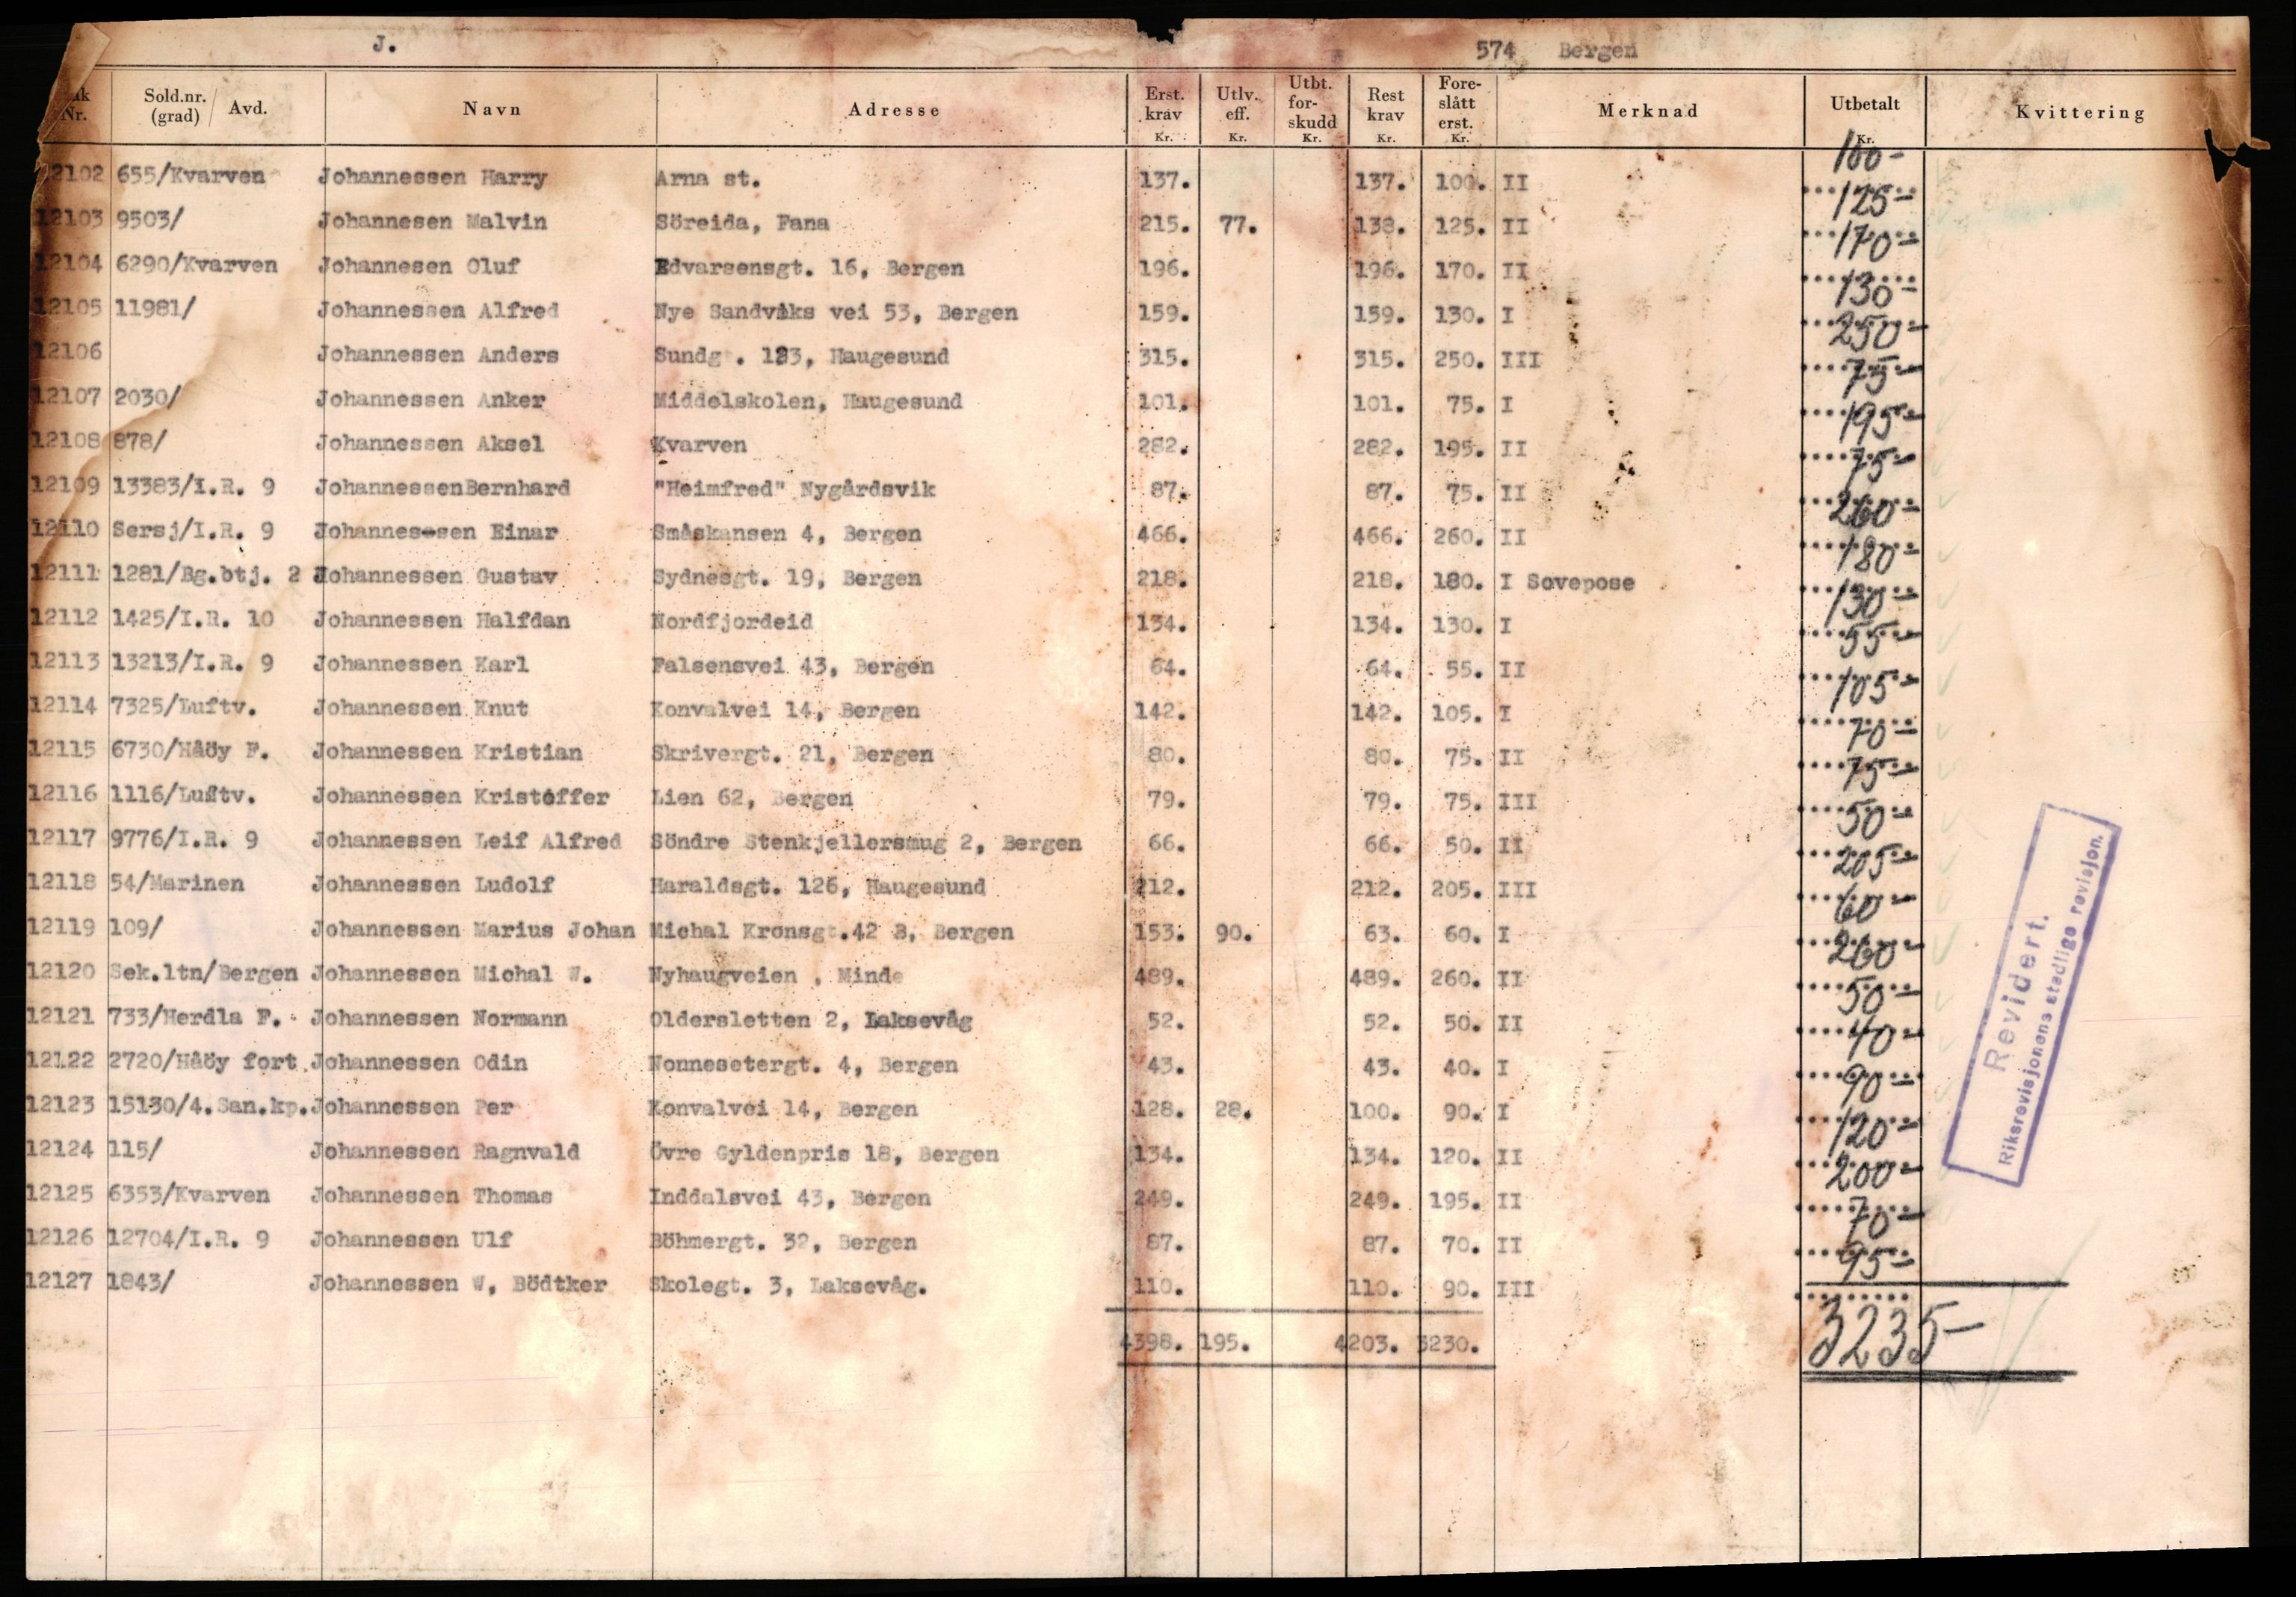 J. 574 Bergen
Nr. Sold.nr. (grad) / Avd. Navn Adresse Erst. krav Kr. Utlv. eff. Kr. Utbt. for- skudd Kr. Rest krav Kr. Fore- slått erst. Kr. Merknad Utbetalt Kr. Kvittering
12102 655/Kvarven Johannessen Harry Arna st. 137. 137. 100. II 100-
12103 9503/ Johannesen Malvin Söreida, Fana 215. 77. 138. 125. II 125-
12104 6290/Kvarven Johannesen Oluf Edvarsensgt. 16, Bergen 196. 196. 170. II 170-
12105 11981/ Johannessen Alfred Nye Sandviks vei 53, Bergen 159. 159. 130. I 130-
12106 Johannessen Anders Sundg . 123, Haugesund 315. 315. 250. III 250-
12107 2030/ Johannessen Anker Middelskolen, Haugesund 101. 101. 75. I 75-
12108 878/ Johannessen Aksel Kvarven 282. 282. 195. II 195-
12109 13383/I.R. 9 JohannessenBernhard "Heimfred" Nygårdsvik 87. 87. 75. II 75-
12110 Sersj/I.R. 9 Johannes-sen Einar Småskansen 4, Bergen 466. 466. 260. II 260-
12111 1281/Bg.btj. 2 Johannessen Gustav Sydnesgt. 19, Bergen 218. 218. 180. I Sovepose 180-
12112 1425/I.R. 10 Johannessen Halfdan Nordfjordeid 134. 134. 130. I 130-
12113 13213/I.R. 9 Johannessen Karl Falsensvei 43, Bergen 64. 64. 55. II 55-
12114 7325/Luftv. Johannessen Knut Konvalvei 14, Bergen 142. 142. 105. I 105-
12115 6730/Håöy F. Johannessen Kristian Skrivergt. 21, Bergen 80. 80. 75. II 70-
12116 1116/Luftv. Johannessen Kristoffer Lien 62, Bergen 79. 79. 75. III 75-
12117 9776/I.R. 9 Johannessen Leif Alfred Söndre Stenkjellersmug 2, Bergen 66. 66. 50. II 50-
12118 54/Marinen Johannessen Ludolf Haraldsgt. 126, Haugesund 212. 212. 205. III 205-
12119 109/ Johannessen Marius Johan Michal Kronsgt.42 B, Bergen 153. 90. 63. 60. I 60-
12120 Sek.ltn/Bergen Johannessen Michal W. Nyhaugveien , Minde 489. 489. 260. II 260-
12121 733/Herdla F. Johannessen Normann Oldersletten 2, Laksevåg 52. 52. 50. II 50-
12122 2720/Håöy fort Johannessen Odin Nonnesetergt. 4, Bergen 43. 43. 40. I 40-
12123 15130/4.San.kp. Johannessen Per Konvalvei 14, Bergen 128. 28. 100. 90. I 90-
12124 115/ Johannessen Ragnvald Övre Gyldenpris 18, Bergen 134. 134. 120. II 120-
12125 6353/Kvarven Johannessen Thomas Inddalsvei 43, Bergen 249. 249. 195. II 200-
12126 12704/I.R. 9 Johannessen Ulf Böhmergt. 32, Bergen 87. 87. 70. II 70-
12127 1843/ Johannessen W, Bödtker Skolegt. 3, Laksevåg. 110. 110. 90. III 95-
4398. 195. 4203. 3230. 3235-
Revidert.
Riksrevisjonens stedlige revisjon.